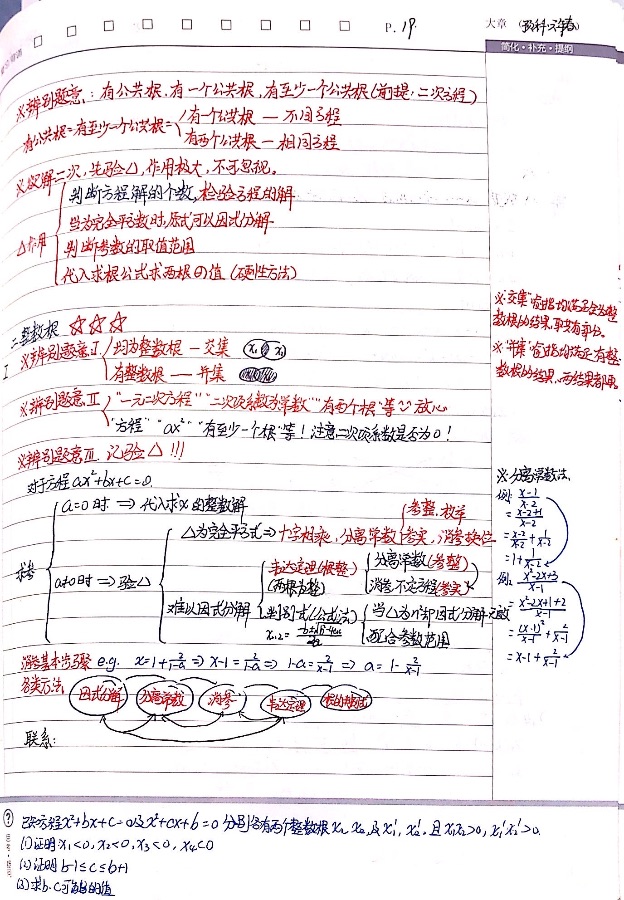 P. 19
大章
简化·补充·提纲
※辨别题意:有公共根,有一个公共根,有至少一个公共根(前提:二次方程)
有公共根=有至少一个公共根=
有一个公共根 — 不同方程
有两个公共根 — 相同方程
※欲解二次,先验△,作用极大,不可忽视。
△作用
判断方程解的个数,检验方程的解
当为完全平方数时,原式可以因式分解
判断参数的取值范围
代入求根公式求两根的值(硬性方法)
二整数根 ☆☆☆
※辨别题意I
均为整数根 — 交集 x₁ x₂
有整数根 — 并集
※辨别题意II
"一元二次方程" "二次项系数为常数" "有两个根"等 放心
"方程" "ax²" "有至少一个根"等!注意二次项系数是否为0!
※辨别题意III 记验△!!!
对于方程ax²+bx+c=0
a=0时 ⇒ 代入求x的整数解
a≠0时 ⇒ 验△
△为完全平方式⇒十字相乘,分离常数
考整,枚举
考实,消参换位
难以因式分解
韦达定理(根整)
(两根为整)
分离常数(考整)
消参 不定方程(考实)
判别式(公式法)
配合参数范围
消参基本步骤 e.g. x=1+2/(1-a) ⇒ x-1=2/(1-a) ⇒ 1-a=2/(x-1) ⇒ a=1-2/(x-1)
各类方法
因式分解 分离常数 消参 韦达定理
联系:
※分离常数法
例1 (x-1)/(x-2)
=(x-2+1)/(x-2)
=(x-2)/(x-2)+1/(x-2)
=1+1/(x-2)
例2 (x²-2x+3)/(x-1)
=(x²-2x+1+2)/(x-1)
=(x-1)²/(x-1)+2/(x-1)
=x-1+2/(x-1)
已知方程x²+bx+c=0及x²+cx+b=0分别各有两个整数根x₁,x₂,及x₁',x₂',且x₁x₂>0,x₁'x₂'>0.
(1)证明x₁<0,x₂<0,x₃<0,x₄<0
(2)证明b-1≤c≤b+1
(3)求b.c可能的值